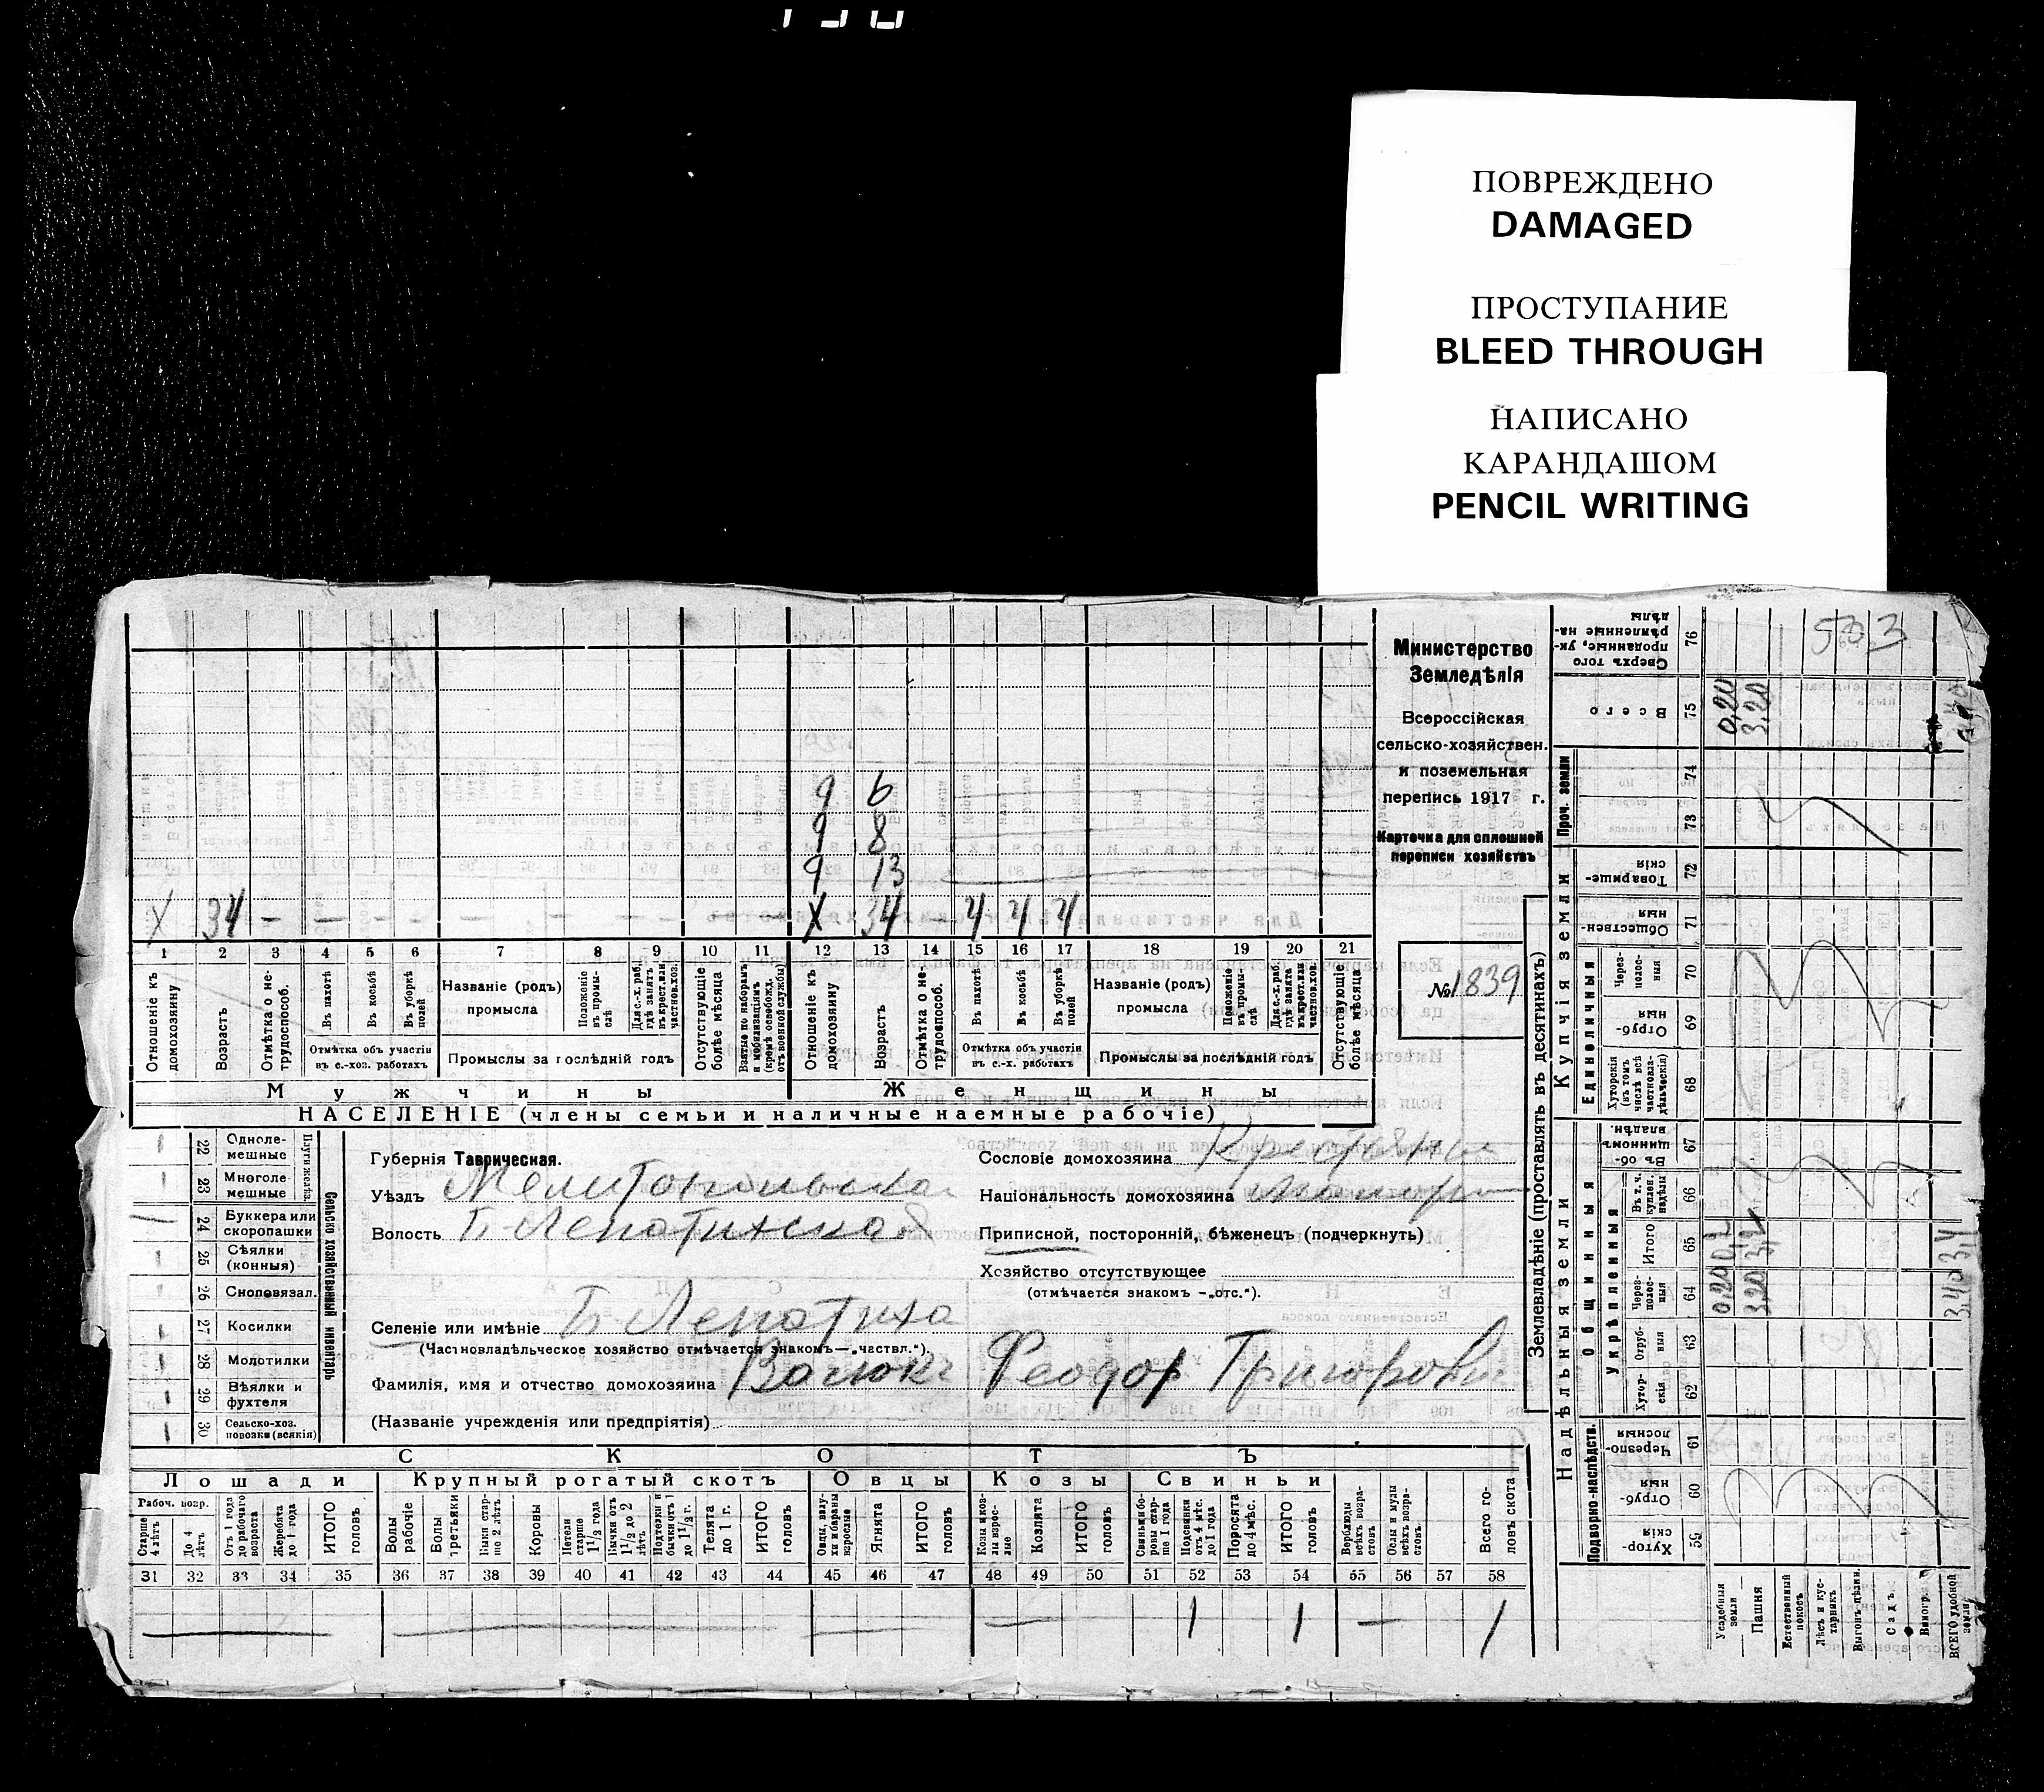 ПОВРЕЖДЕНО
DAMAGED
ПРОСТУПАНИЕ
BLEED THROUGH
НАПИСАНО
КАРАНДАШОМ
PENCIL WRITING
9 6
9 8
9 13
X 34 — — — — X 34 — 4 4 4
1 2 3 4 5 6 7 8 9 10 11 12 13 14 15 16 17 18 19 20 21
Отношеніе къ домохозяину
Возрастъ
Отмѣтка о нетрудоспособ.
Въ пахотѣ
Въ косьбѣ
Въ уборкѣ полей
Отмѣтка объ участіи въ с.-хоз. работахъ
Названіе (родъ) промысла
Положеніе въ промыслѣ
Для с.-х. раб., гдѣ занятъ въ крест. или частнов. хоз.
Промыслы за послѣдній годъ
Отсутствующіе болѣе мѣсяца
Взятые по наборамъ и мобилизаціямъ (кромѣ освобожд. отъ военной службы)
Отношеніе къ домохозяину
Возрастъ
Отмѣтка о нетрудоспособ.
Въ пахотѣ
Въ косьбѣ
Въ уборкѣ полей
Отмѣтка объ участіи въ с.-х. работахъ
Названіе (родъ) промысла
Положеніе въ промыслѣ
Для с.-х. раб. гдѣ занята въ крест. или частнов. хоз.
Промыслы за послѣдній годъ
Отсутствующіе болѣе мѣсяца
Мужчины Женщины
НАСЕЛЕНІЕ (члены семьи и наличные наемные рабочіе)
Министерство
Земледѣлія
Всероссійская
сельско-хозяйствен.
и поземельная
перепись 1917 г.
Карточка для сплошной
переписи хозяйствъ
№ 1839
22 Однолемешные
23 Многолемешные
24 Буккера или скоропашки
25 Сѣялки (конныя)
26 Сноповязал.
27 Косилки
28 Молотилки
29 Вѣялки и фухтеля
30 Сельско-хоз. повозки (всякія)
Сельско хозяйственный инвентарь
Губернія Таврическая.
Уѣздъ Мелитопольска
Волость Б-Лепатихская
Селеніе или имѣніе Б Лепатиха
(Частновладѣльческое хозяйство отмѣчается знакомъ — „частвл.“).
Фамилія, имя и отчество домохозяина Феодор Григорови
(Названіе учрежденія или предпріятія)
Сословіе домохозяина
Національность домохозяина
Приписной, посторонній, бѣженец (подчеркнуть)
Хозяйство отсутствующее
(отмѣчается знакомъ —„отс.“).
СКОТЪ
Лошади Крупный рогатый скотъ Овцы Козы Свиньи
Рабоч. возр.
Старше 4 лѣтъ
До 4 лѣтъ
Отъ 1 года до рабочаго возраста
Жеребята до 1 года
ИТОГО головъ
Волы рабочіе
Волы третьяки
Быки старше 2 лѣтъ
Коровы
Нетели старше 1 1/2 года
Бычки отъ 1 1/2 до 2 лѣтъ
Подтелки и бычки отъ 1 до 1 1/2 г.
Телята до 1 г.
ИТОГО головъ
Овцы, валухи и бараны взрослые
Ягнята
ИТОГО головъ
Козы и козлы взрослые
Козлята
ИТОГО головъ
Свиньи и боровы старше 1 года
Подсвинки отъ 4 мѣс. до 1 года
Поросята до 4 мѣс.
ИТОГО головъ
Верблюды всѣхъ возрастовъ
Ослы и мулы всѣхъ возрастовъ
Всего головъ скота
31 32 33 34 35 36 37 38 39 40 41 42 43 44 45 46 47 48 49 50 51 52 53 54 55 56 57 58
1 1 — 1
Землевладѣніе (проставлять въ десятинахъ)
Надѣльныя земли Купчія земли
Подворно-наслѣдств.
Общинныя
Укрѣпленныя
Единоличныя
Проч. земли
Хуторскія 59
Отрубныя 60
Черезполосныя 61
Хуторскія 62
Отрубныя 63
Черезполосныя 64
Итого 65
Въ т. ч. куплен. надѣлы 66
Въ общинномъ владѣн. 67
Хуторскія (въ томъ числѣ всѣ частновладѣльческія) 68
Отрубныя 69
Черезполосныя 70
Общественныя 71
Товарищескія 72
73
74
Всего 75
Сверхъ того проданные, укрѣпленные надѣлы 76
Усадебныя земли 0,20 0,20
Пашня 3,20 3,20
Естественный покосъ
Лѣсъ и кустарникъ
Выгонъ дѣлки.
Садъ
Виногр.
ВСЕГО удобной земли 3,40 3,4
503